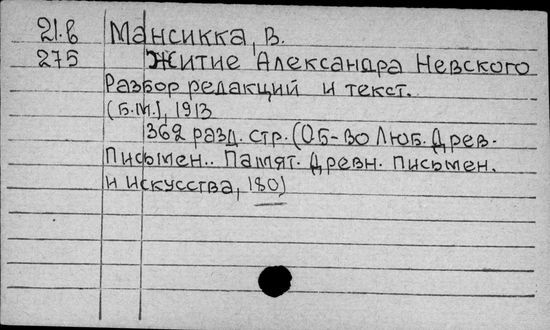 21.6 Мансикка, В.
275 Житие Александра Невского
Разбор редакций и текст.
(Б.М.), 1913
362 разд. стр. (Об-во Люб. Древ.
Письмен.. Памят. Древн. письмен.
и искусства, 180)